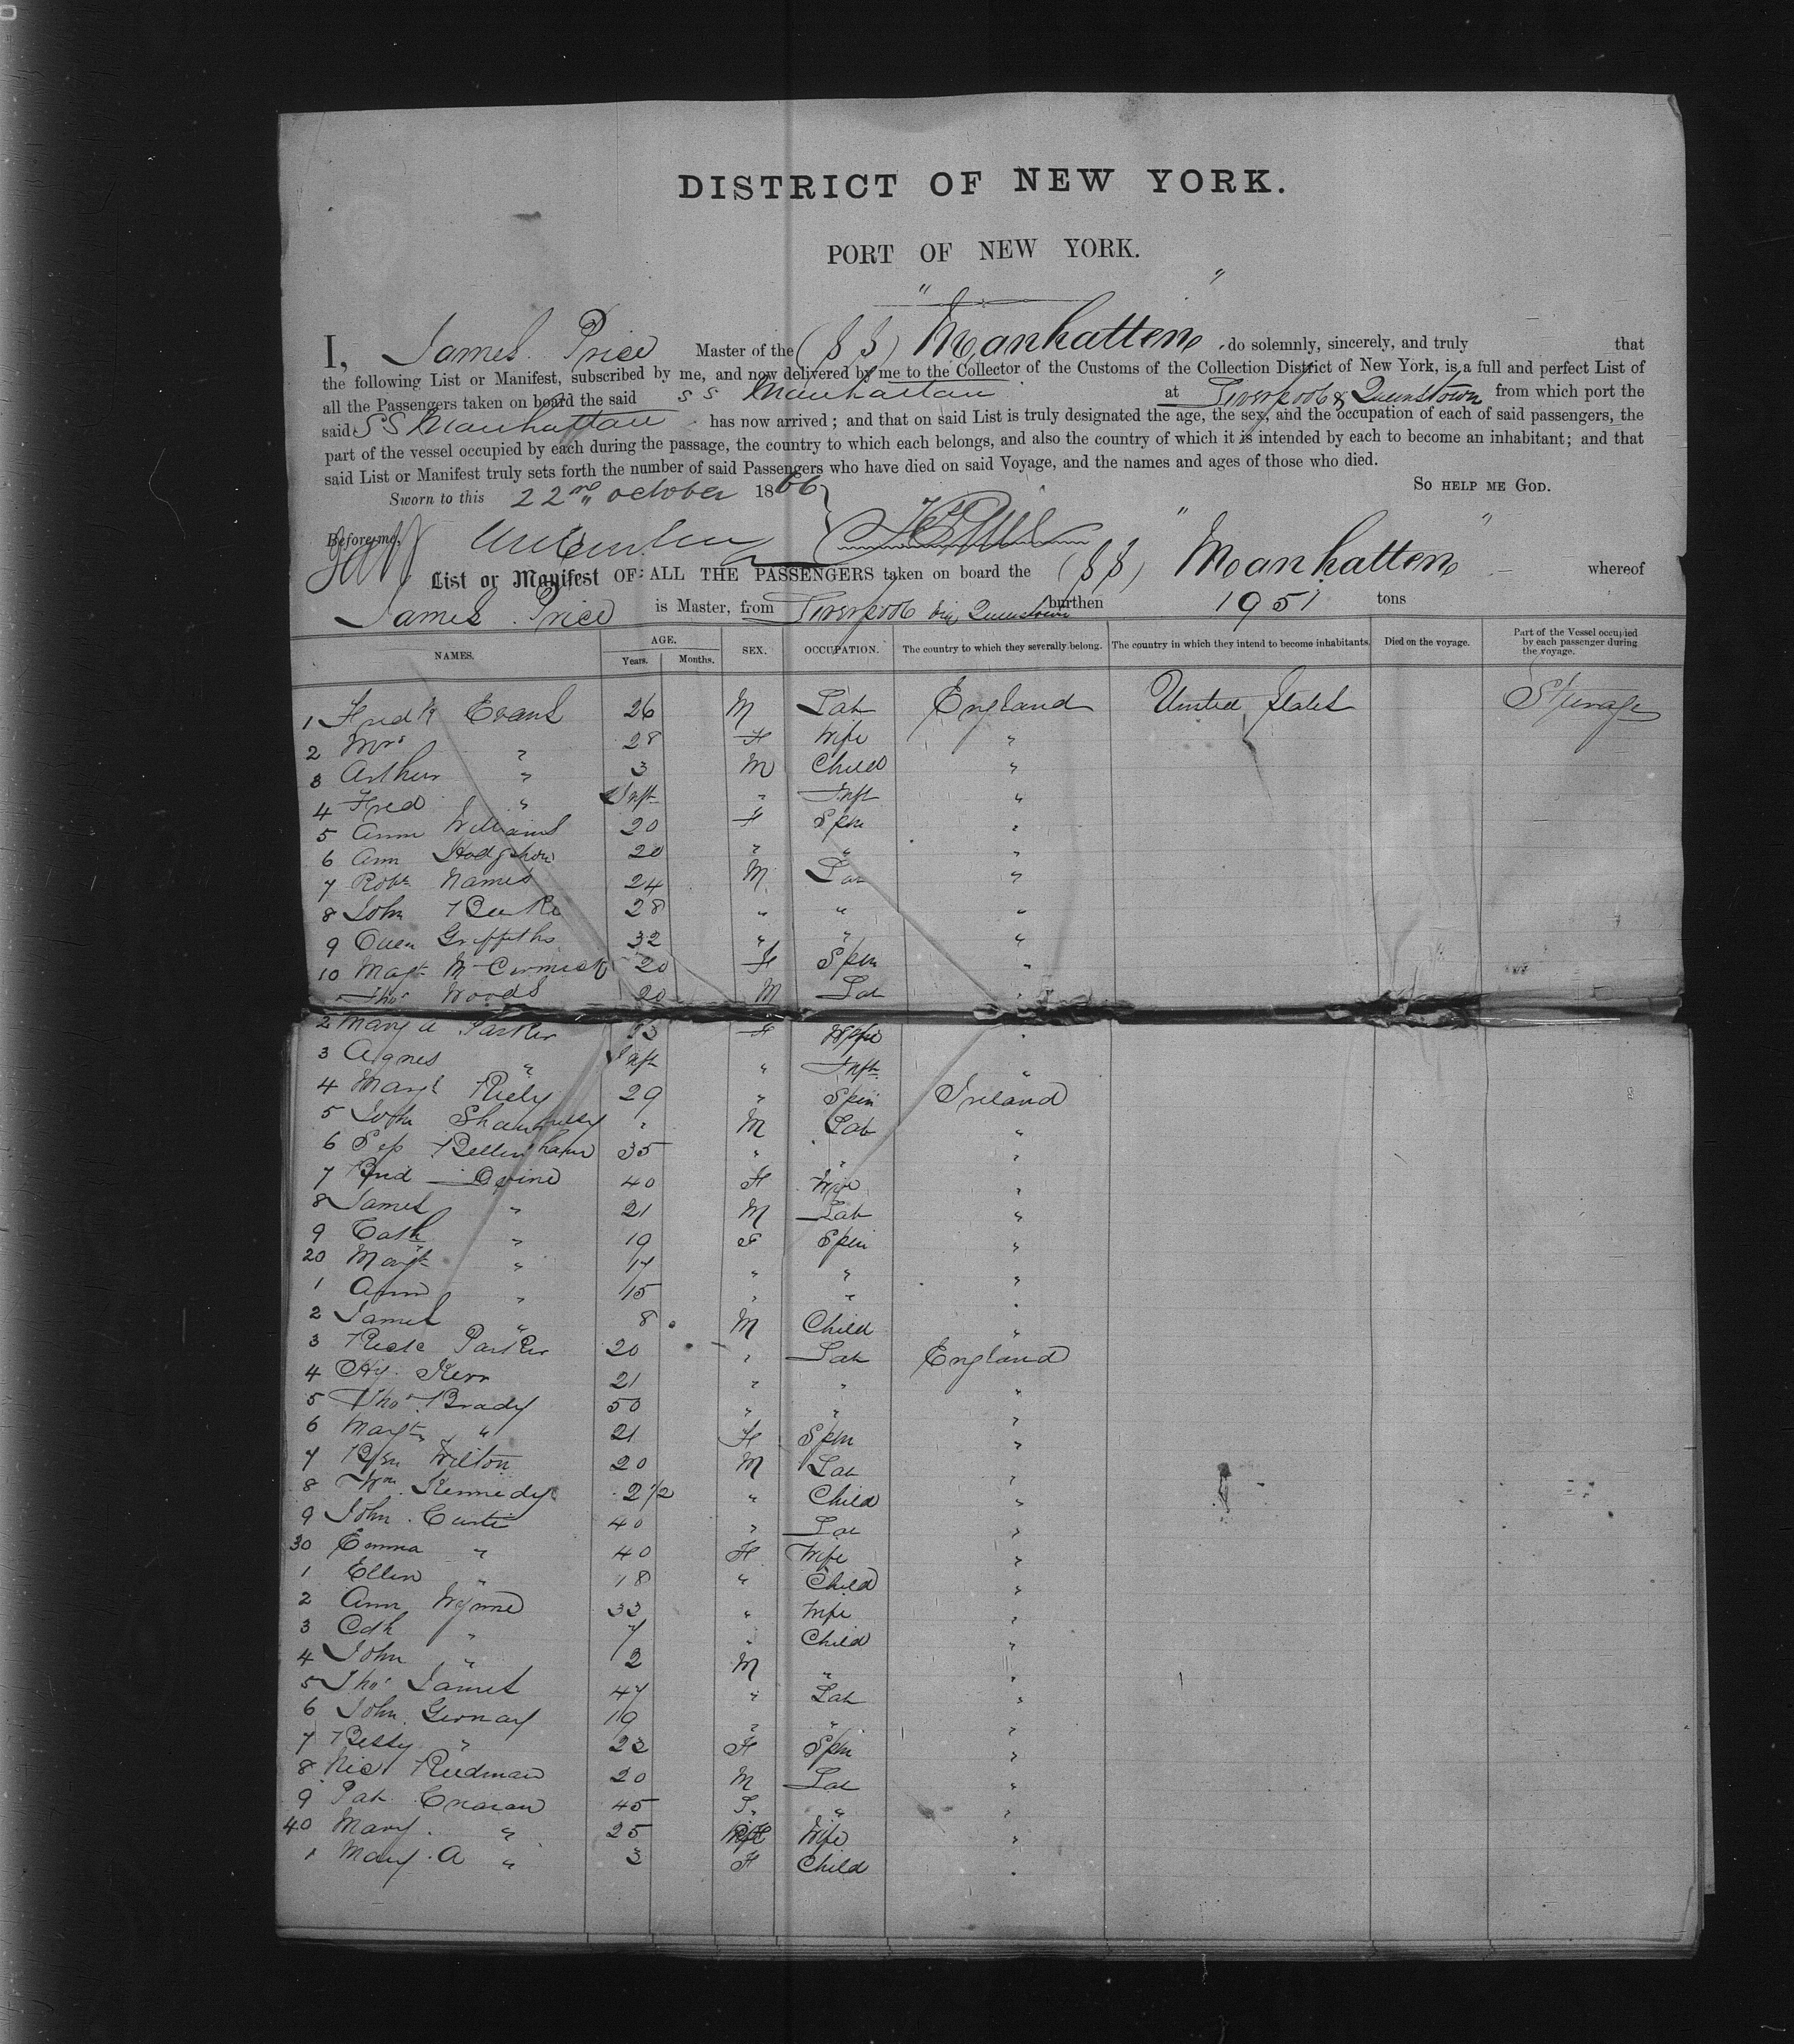 DISTRICT OF NEW YORK.
PORT OF NEW YORK.
" "
I, James Price Master of the (S S) Manhatten do solemnly, sincerely, and truly that
the following List or Manifest, subscribed by me, and now delivered by me to the Collector of the Customs of the Collection District of New York, is a full and perfect List of
all the Passengers taken on board the said S S Manhattan at Liverpool & Queenstown from which port the
said SS Manhattan has now arrived; and that on said List is truly designated the age, the sex, and the occupation of each of said passengers, the
part of the vessel occupied by each during the passage, the country to which each belongs, and also the country of which it is intended by each to become an inhabitant; and that
said List or Manifest truly sets forth the number of said Passengers who have died on said Voyage, and the names and ages of those who died.
Sworn to this 22nd October 1866 SO HELP ME GOD.
Before me,
List or Manifest OF ALL THE PASSENGERS taken on board the (S S) "Manhatten" whereof
James Price is Master, from Liverpool via Queenstown burthen 1951 tons
NAMES. AGE. Years. Months. SEX. OCCUPATION. The country to which they severally belong. The country in which they intend to become inhabitants. Died on the voyage. Part of the Vessel occupied by each passenger during the voyage.
1 Fredk Evans 26 M Lab England United States Steerage
2 Mrs " 28 F Wife "
3 Arthur " 3 M Child "
4 Fred " Inft " Inft "
5 Ann Williams 20 F Spin "
6 Ann Hodgshon 20 " " "
7 Robt 24 M Lab "
8 John 28 " " "
9 Owen Griffiths 32 " " "
10 Magt McCormick 20 F Spin "
Thos Woods 20 M Lab "
2 Mary A Parker F Wife "
3 Agnes " Inft " Inft "
4 Margt Riely 29 " Spin Ireland
5 John Shaunnesy " M Lab "
6 Sep Bellingham 35 " " "
7 Brid 40 F Wife "
8 James " 21 M Lab "
9 Cath " 19 F Spin "
20 Margt " 17 " " "
1 Ann " 15 " " "
2 James " 8 M Child "
3 Parker 20 " Lab England
4 Hy. Kerr 21 " " "
5 Thos Brady 50 " " "
6 Margt " 21 F Spin "
7 Wilton 20 M Lab "
8 Wm Kennedy 2 1/2 " Child "
9 John Curtis 40 " Lab "
30 Emma " 40 F Wife "
1 Ellen " 18 " Child "
2 Ann Wynne 33 " Wife "
3 Cath " 7 " Child "
4 John " 2 M " "
5 Thos James 47 " Lab "
6 John Gernay 19 " " "
7 Bessy " 22 F Spin "
8 Nics Redman 20 M Lab "
9 Pat 45 " "
40 Mary " 25 Wife "
1 Mary A " 3 F Child "